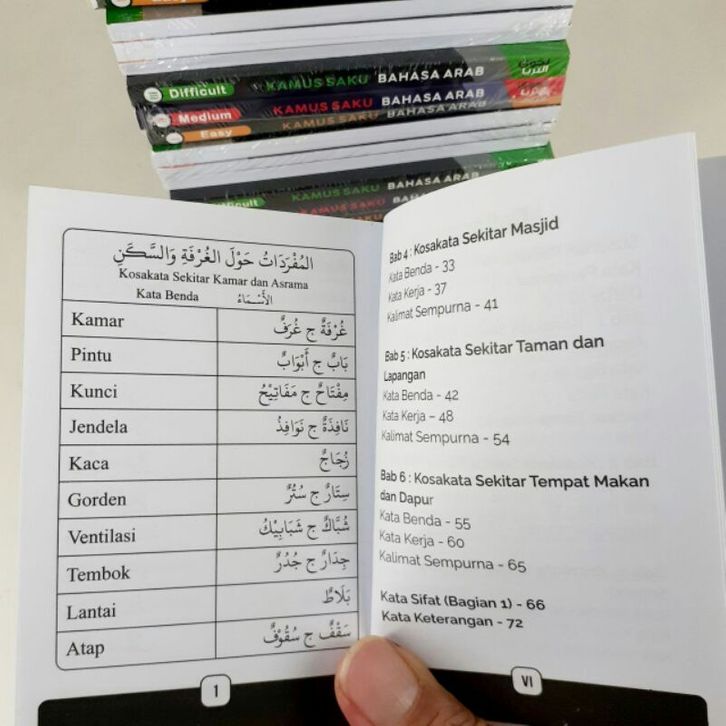 Easy
Difficult KAMUS SAKU BAHASA ARAB
Medium KAMUS SAKU BAHASA ARAB
Easy KAMUS SAKU BAHASA ARAB
Difficult KAMUS SAKU BAHASA ARAB
KAMUS SAKU
KAMUS SAKU
المُفْرَدَاتُ حَوْلَ الغُرْفَةِ وَالسَّكَنِ
Kosakata Sekitar Kamar dan Asrama
Kata Benda الأَسْمَاءُ
Kamar غُرْفَةٌ ج غُرَفٌ
Pintu بَابٌ ج أَبْوَابٌ
Kunci مِفْتَاحٌ ج مَفَاتِيْحُ
Jendela نَافِذَةٌ ج نَوَافِذُ
Kaca زُجَاجٌ
Gorden سِتَارٌ ج سُتُرٌ
Ventilasi شُبَّاكٌ ج شَبَابِيْكُ
Tembok جِدَارٌ ج جُدُرٌ
Lantai بَلَاطٌ
Atap سَقْفٌ ج سُقُوْفٌ
1
Bab 4 : Kosakata Sekitar Masjid
Kata Benda - 33
Kata Kerja - 37
Kalimat Sempurna - 41
Bab 5 : Kosakata Sekitar Taman dan
Lapangan
Kata Benda - 42
Kata Kerja – 48
Kalimat Sempurna - 54
Bab 6 : Kosakata Sekitar Tempat Makan
dan Dapur
Kata Benda - 55
Kata Kerja - 60
Kalimat Sempurna - 65
Kata Sifat (Bagian 1) - 66
Kata Keterangan - 72
VI